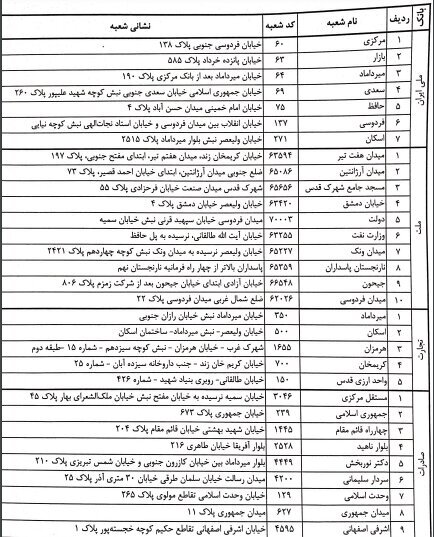 بانک ردیف نام شعبه کد شعبه نشانی شعبه
ملی ایران
۱ مرکزی ۶۰ خیابان فردوسی جنوبی پلاک ۱۳۸
۲ بازار ۶۳ خیابان پانزده خرداد پلاک ۵۸۵
۳ میرداماد ۶۴ خیابان میرداماد بعد از بانک مرکزی پلاک ۱۹۰
۴ سعدی ۶۹ خیابان جمهوری اسلامی خیابان سعدی جنوبی نبش کوچه شهید علیپور پلاک ۲۶۰
۵ حافظ ۷۵ خیابان امام خمینی میدان حسن آباد پلاک ۴
۶ فردوسی ۱۳۷ خیابان انقلاب بین میدان فردوسی و خیابان استاد نجات‌الهی نبش کوچه نیایی
۷ اسکان ۲۷۱ خیابان ولیعصر نبش بلوار میرداماد پلاک ۲۵۱۵
ملت
۱ میدان هفت تیر ۶۳۵۹۴ خیابان کریمخان زند، میدان هفتم تیر، ابتدای مفتح جنوبی، پلاک ۱۹۷
۲ میدان آرژانتین ۶۵۰۸۶ ضلع جنوبی میدان آرژانتین، ابتدای خیابان احمد قصیر، پلاک ۷۳
۳ مسجد جامع شهرک قدس ۶۵۶۵۶ شهرک قدس میدان صنعت خیابان فرحزادی پلاک ۵۵
۴ خیابان دمشق ۶۳۴۲۰ خیابان ولیعصر نبش دمشق پلاک ۴
۵ دولت ۷۰۰۰۳ میدان فردوسی خیابان سپهبد قرنی نبش خیابان سمیه
۶ وزارت نفت ۶۳۲۵۵ خیابان آیت الله طالقانی، نرسیده به پل حافظ
۷ میدان ونک ۶۵۲۲۷ خیابان ولیعصر نرسیده به میدان ونک نبش کوچه چهاردهم پلاک ۲۴۲۱
۸ نارنجستان پاسداران ۶۵۳۵۹ پاسداران بالاتر از چهار راه فرمانیه نارنجستان نهم
۹ جیحون ۶۶۵۴۸ خیابان آزادی ابتدای خیابان جیحون بعد از شرکت زمزم پلاک ۸۰۶
۱۰ میدان فردوسی ۶۲۰۲۶ ضلع شمال غربی میدان فردوسی پلاک ۲۲
تجارت
۱ میرداماد ۳۵۰ خیابان میرداماد نبش خیابان رازان جنوبی
۲ اسکان ۵۰۰ خیابان ولیعصر- نبش میرداماد- ساختمان اسکان
۳ هرمزان ۱۶۵۵ شهرک غرب - خیابان هرمزان - نبش کوچه سیزدهم - شماره ۱۵ -طبقه دوم
۴ کریمخان ۷۰۰ خیابان کریم خان زند - جنب داروخانه سیزده آبان - شماره ۲۵
۵ واحد ارزی قدس ۱۵۰ خیابان طالقانی- روبری بنیاد شهید - شماره ۴۲۶
صادرات
۱ مستقل مرکزی ۳۰۴۶ خیابان سمیه نرسیده به خیابان مفتح نبش خیابان ملک‌الشعرای بهار پلاک ۴۵
۲ جمهوری اسلامی ۲۳۹ خیابان جمهوری پلاک ۶۷۳
۳ چهارراه قائم مقام ۱۴۴۵ خیابان شهید بهشتی خیابان قائم مقام پلاک ۲۰۴
۴ بلوار ناهید ۲۵۲۸ بلوار آفریقا خیابان طاهری ۲۱۶
۵ دکتر نوربخش ۴۴۴۹ بلوار میرداماد بین خیابان کازرون جنوبی و خیابان شمس تبریزی پلاک ۲۱۰
۶ سردار سلیمانی ۴۲۰۰ میدان رسالت خیابان سلمان طرقی خیابان ۳۰ متری آذر پلاک ۲۵
۷ وحدت اسلامی ۱۲۹ خیابان وحدت اسلامی تقاطع مولوی پلاک ۲۶۵
۸ میدان جمهوری ۶۲۷ میدان جمهوری پلاک ۱۱
۹ اشرفی اصفهانی ۴۵۹۵ خیابان اشرفی اصفهانی تقاطع حکیم کوچه خجسته‌پور پلاک ۱